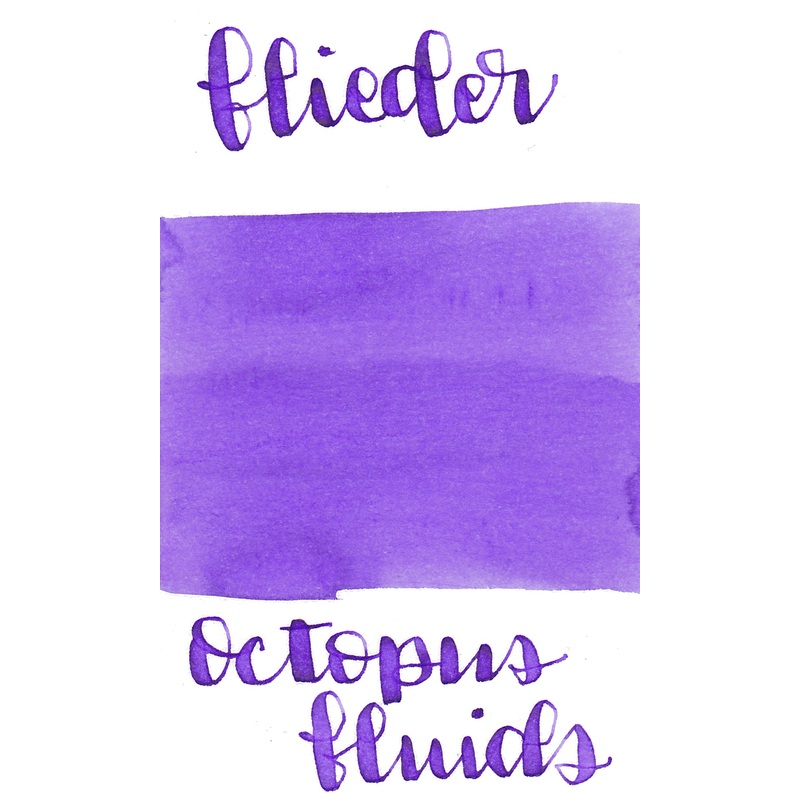 flieder
octopus
fluids